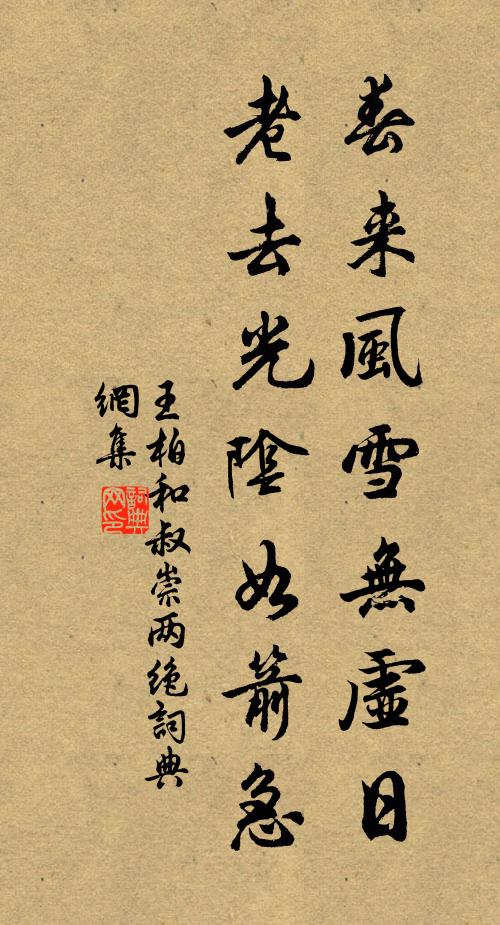 春来風雪無虛日
老去光陰如箭急
王柏和叔崇两绝詞典
網集
詞典
网印